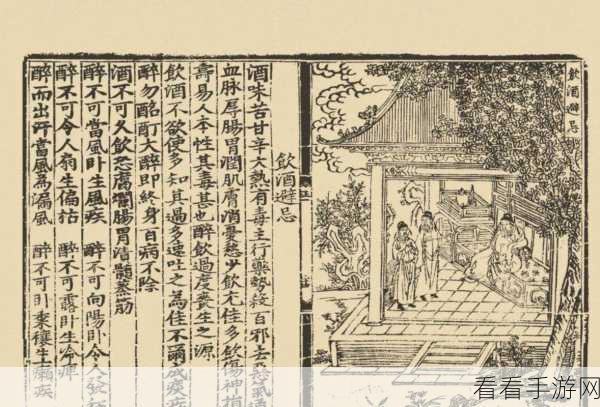 飲酒避忌
飲酒避忌
酒味苦甘辛大熱有毒主行藥勢殺百邪去惡氣通
血脉厚腸胃潤肌膚消憂愁少飲尤佳多飲傷神損
壽易人本性其毒甚也醉飲過度喪生之源
飲酒不欲使多知其過多速吐之為佳不爾成痰疾
醉勿酩酊大醉即終身百病不除
酒不可久飲恐腐爛腸胃漬髓蒸筋
醉不可當風卧生風疾 醉不可向陽卧令人發
醉不可令人扇生偏枯 醉不可露卧生冷痺
醉而出汗當風為漏風 醉不可卧黍穰生癩疾
看看手游网